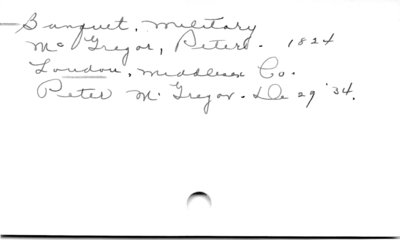 Banquet, military
Mc Gregor, Peter. - 1824
London, Middlesex Co.
Peter Mc Gregor - De 29 '34.